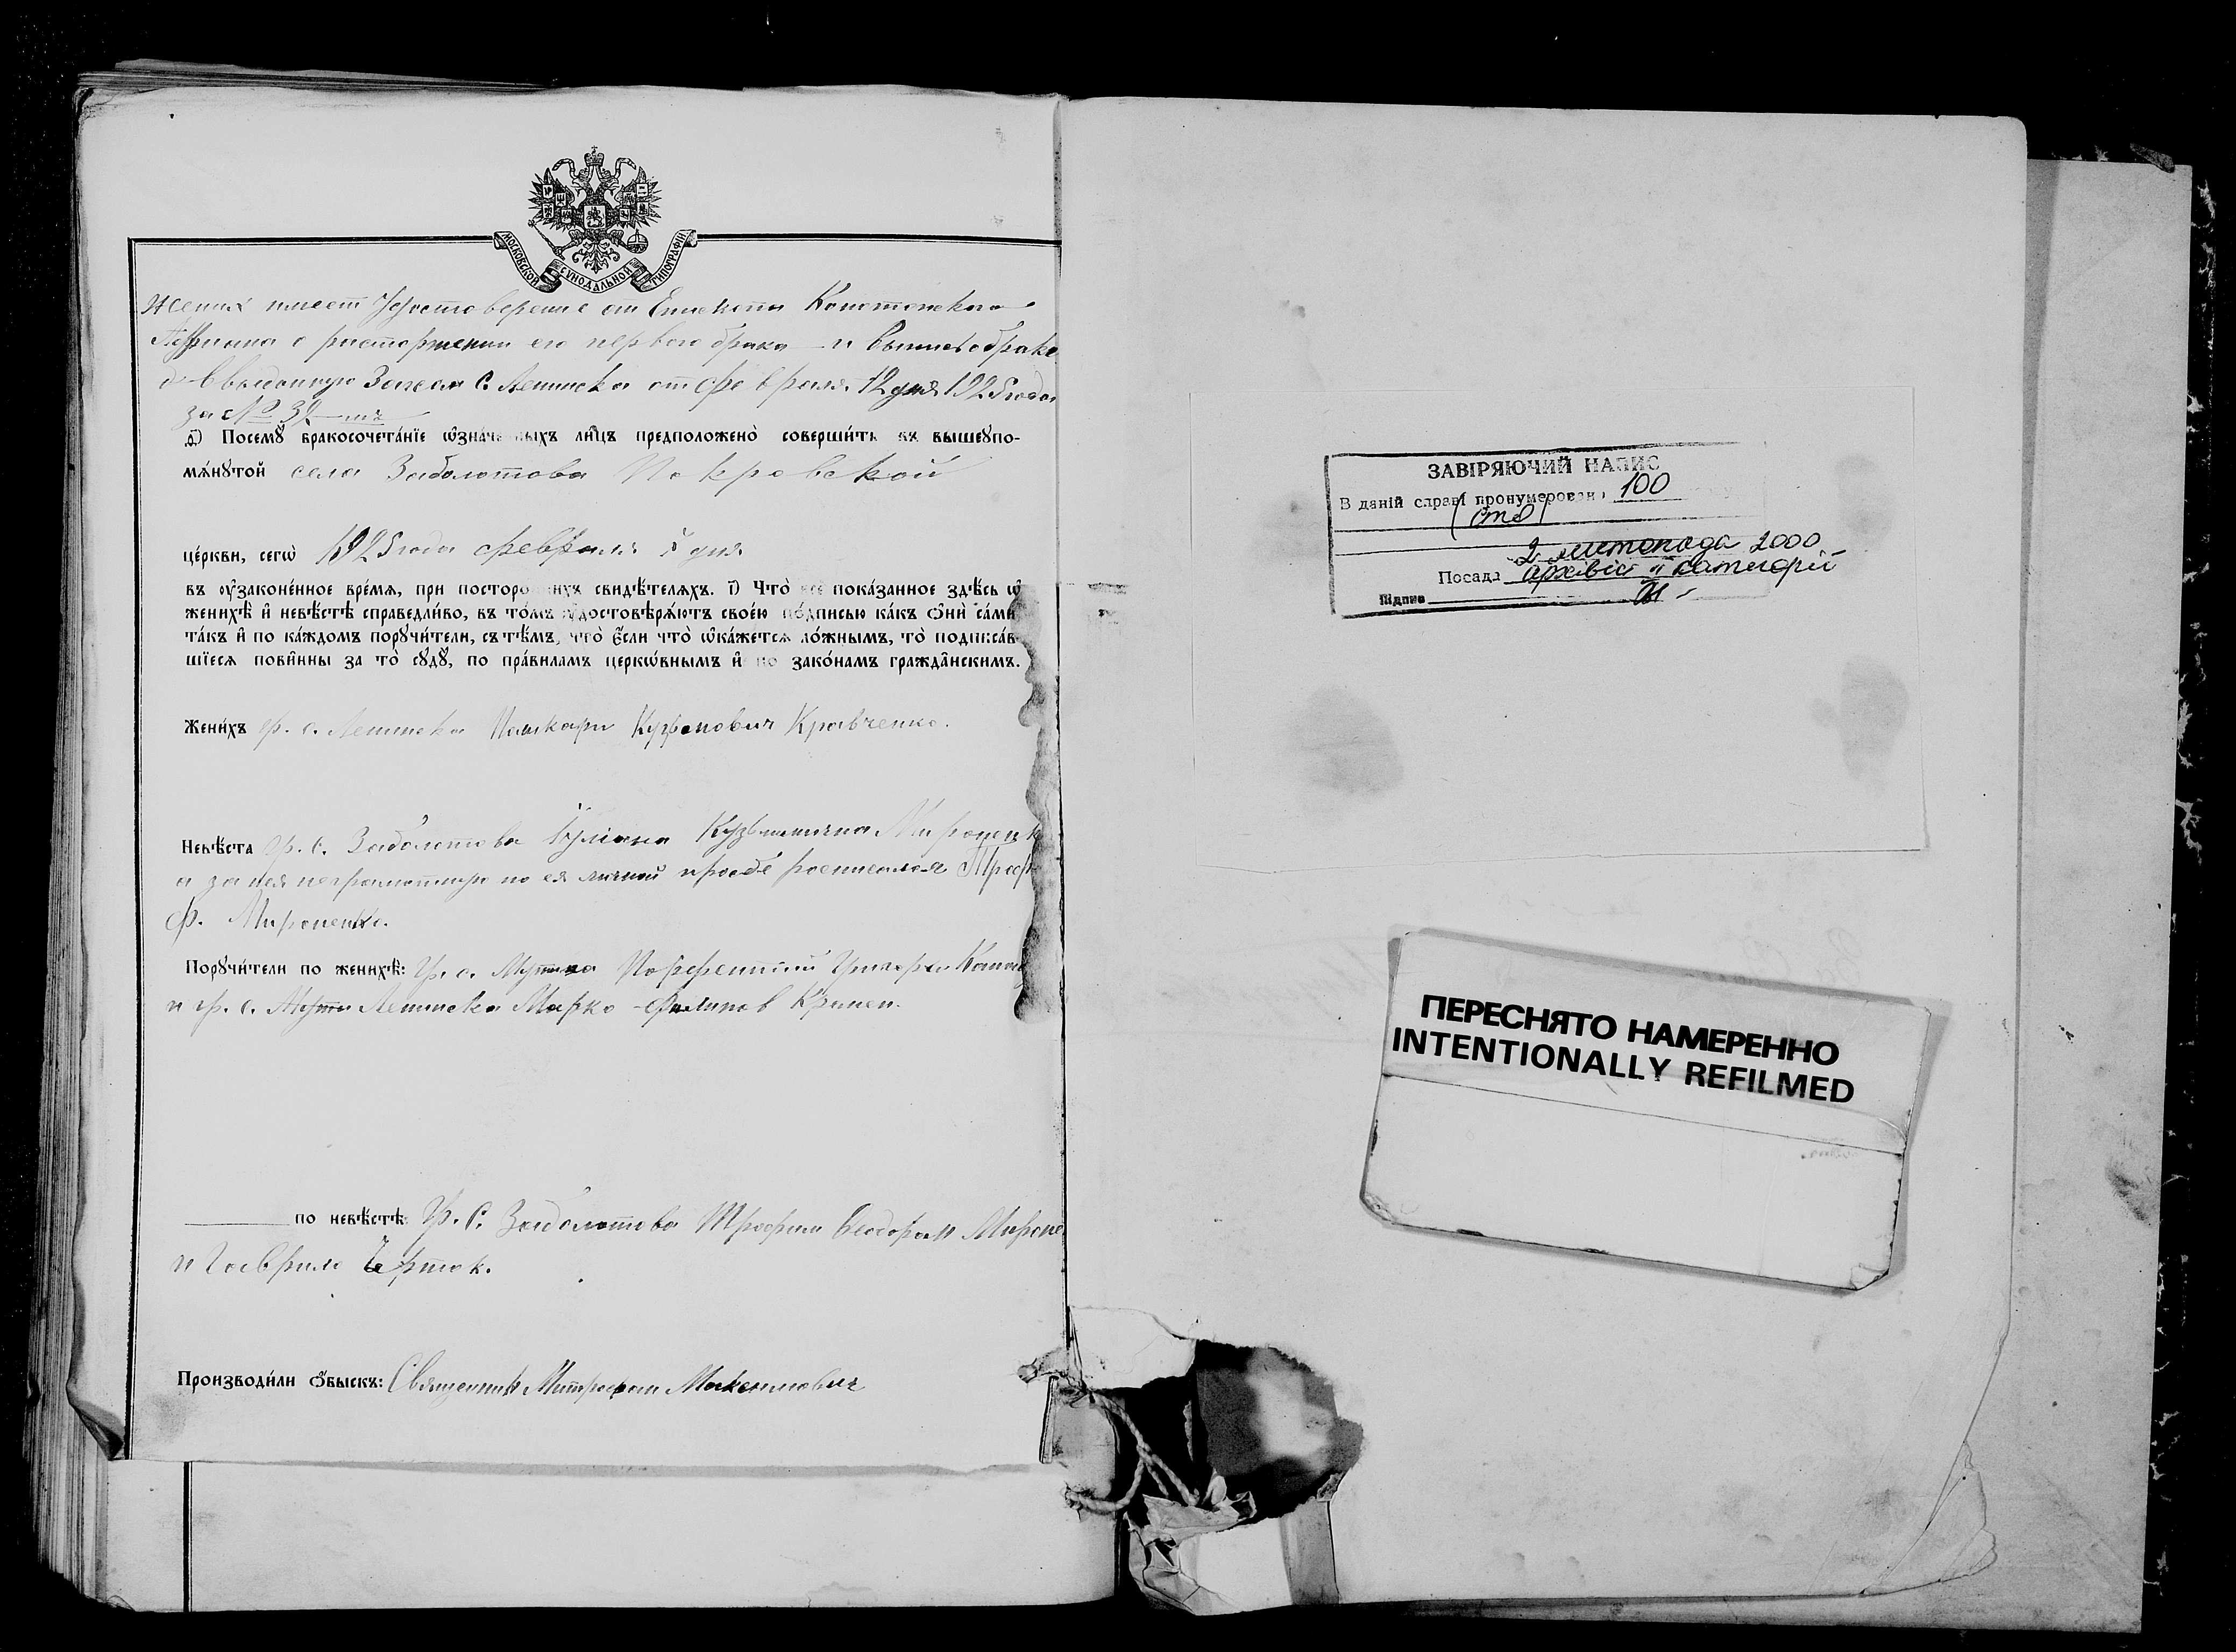 МОСКОВСКОЙ СѴНОДАЛЬНОЙ ТИПОГРАФІИ
Жених имеет Удостоверение от Епископа Конотопского
о расторжении его первого брака и
с. Ленинска от февраля 12 дня 1925 года
за №
д҃) Посемꙋ̀ бракосочета́нїе ѡ҆зна́че ныхъ ли́цъ предположено̀ соверши́ть въ вышеꙋпо-
мѧ́нꙋтой села Заболотова Покровской
це́ркви, сегѡ̀ 1925 года февраля дня
въ ᲂу҆зако́ненное вре́мѧ, при посторо ннхъ свидѣ́телѧхъ. і҃) Что̀ все пока́занное здѣ́сь ѡ
женихѣ̀ и҆ невѣ́стѣ справедли́во, въ то́мъ ᲂу҆достовѣрѧ́ютъ свое́ю по́дписью ка́къ ѻ҆нѝ са́ми
та́къ и҆ по ка́ждомъ порꙋчи́тели, съ тѣ́мъ, что̀ є҆́сли что̀ ѡ҆ка́жетсѧ ло́жнымъ, то̀ подписа́в
шїесѧ пови́нны за то̀ сꙋдꙋ̀, по пра́виламъ церкѡ́внымъ и҆ по зако́намъ гражда̑нскимъ.
Жени́хъ гр. с. Ленинска Кравченко.
Невѣ́ста Гр. с. Заболотова Иулиана Кузьминична Мироненк
а за нея неграмотную по ея личной просьбе росписался
Ф. Мироненко.
Порꙋчи́тели по женихѣ̀: Гр. с.
и гр. с. Ленинска Марко Филипов
по невѣ́стѣ Гр. с. Заболотова Трофим Феодоров Мироне
и Гаврило Черток.
Производи́ли ѻ҆́быскъ: Священник Митрофан Максимович
ЗАВІРЯЮЧИЙ НАПИС
В даній справі пронумеровано 100
(сто)
2 листопада 2000
Посада архівіст II категорії
Підпис
ПЕРЕСНЯТО НАМЕРЕННО
INTENTIONALLY REFILMED